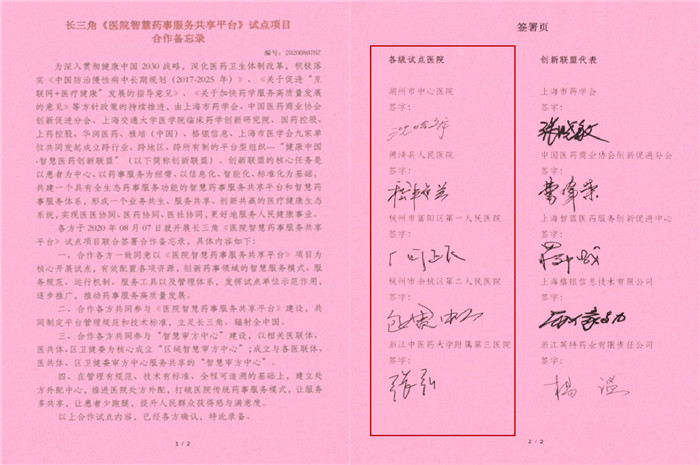 长三角《医院智慧药事服务共享平台》试点项目
合作备忘录
编号：20200807HZ
为深入贯彻健康中国 2030 战略，深化医药卫生体制改革，积极落
实《中国防治慢性病中长期规划（2017-2025 年）》、《关于促进“互
联网+医疗健康”发展的指导意见》、《关于加快药学服务高质量发展
的意见》等方针政策的持续推进，由上海市药学会、中国医药商业协会
创新促进分会、上海交通大学医学院临床药学创新研究院、国药控股、
上药控股、华润医药、雅培（中国）、格银信息、上海市医学会九家单
位共同发起成立跨行业、跨地区、跨所有制的平台型组织—“健康中国
·智慧医药创新联盟”（以下简称创新联盟）。创新联盟的核心任务是
以患者为中心、以药事服务为经带、以信息化、智能化、标准化为基础，
共建一个具有全生态药事服务功能的智慧药事服务共享平台和智慧药
事服务体系，形成一个业务共生、服务共享、创新共赢的医疗健康生态
系统，实现医医协同、医药协同、医社协同，更好地服务人民健康事业。
各方于 2020 年 08 月 07 日就开展长三角《医院智慧药事服务共享
平台》试点项目联合签署合作备忘录，具体内容如下：
一、合作各方一致同意以《医院智慧药事服务共享平台》项目为
核心开展试点，有效配置各项资源，创新药事领域的智慧服务模式、服
务规范、运行机制、服务工具以及管理体系，发挥试点单位示范作用，
逐步推广，推动药事服务高质量发展。
二、合作各方共同参与《医院智慧药事服务共享平台》建设，共
同制定平台管理规范和技术标准，立足长三角、辐射全中国。
三、合作各方共同参与“智慧审方中心”建设，以相关医联体、
医共体、区卫健委为核心成立“区域智慧审方中心”;成立与各医联体、
医共体、区卫健委审方中心共享的“智慧审方中心”。
四、在管理有规范、技术有标准、全程可追溯的基础上，建立处
方外配中心，推进医院处方外配，打破医院传统药事服务模式，让服务
多共享，让患者少跑腿，提升人民群众获得感与满意度。
以上合作试点内容，已经各方确认，特此录备。
1 / 2
签署页
各级试点医院
湖州市中心医院
签字：
德清县人民医院
签字：
杭州市富阳区第一人民医院
签字：
杭州市余杭区第二人民医院
签字：
浙江中医药大学附属第三医院
签字：
张弘
创新联盟代表
上海市药学会
签字：
张晓敏
中国医药商业协会创新促进分会
签字：
上海智盟医药服务创新促进中心
签字：
上海格银信息技术有限公司
签字：
浙江英特药业有限责任公司
签字：
2 / 2